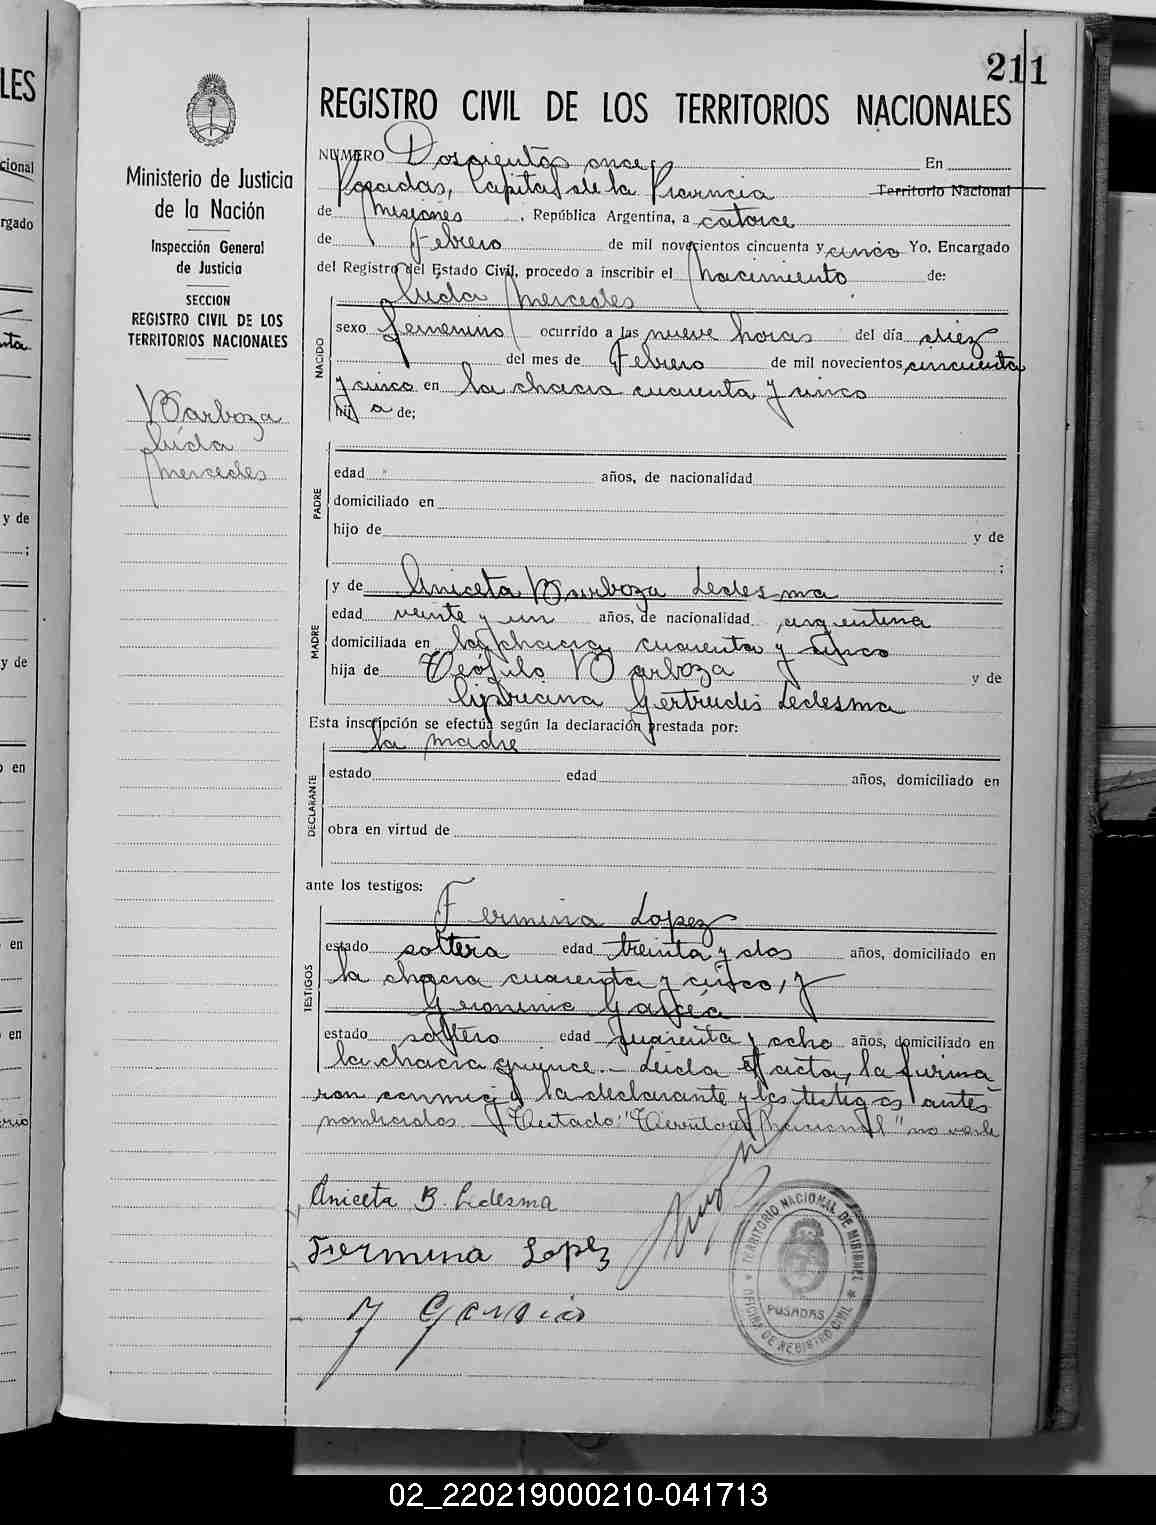 211
REGISTRO CIVIL DE LOS TERRITORIOS NACIONALES
Ministerio de Justicia
de la Nación
Inspección General
de Justicia
SECCION
REGISTRO CIVIL DE LOS
TERRITORIOS NACIONALES
Barboza
Lida
Mercedes
NUMERO Doscientos once En
Posadas, Capital de la Provincia Territorio Nacional
de Misiones, República Argentina, a catorce
de Febrero de mil novecientos cincuenta y cinco Yo. Encargado
del Registro del Estado Civil, procedo a inscribir el Nacimiento de:
Lida Mercedes
NACIDO
sexo femenino ocurrido a las nueve horas del día diez
del mes de Febrero de mil novecientos cincuenta
y cinco en la chacra cuarenta y cinco
hij a de;
PADRE
edad años, de nacionalidad
domiciliado en
hijo de y de
;
MADRE
y de Aniceta Barboza Ledesma
edad veinte y un años, de nacionalidad argentina
domiciliada en la chacra cuarenta y cinco
hija de Teófilo Barboza y de
Cipriana Gertrudis Ledesma
Esta inscripción se efectúa según la declaración prestada por:
la madre
DECLARANTE
estado edad años, domiciliado en
obra en virtud de
ante los testigos:
TESTIGOS
Fermina Lopez
estado soltera edad treinta y dos años, domiciliado en
la chacra cuarenta y cinco, y
Geronimo García
estado soltero edad cuarenta y ocho años, domiciliado en
la chacra quince.- Leida el acta, la firma-
ron conmigo la declarante y los testigos antes
nombrados. Testado: "Territorio Nacional" no vale
Aniceta B. Ledesma
Fermina Lopez
J Garsia
TERRITORIO NACIONAL DE MISIONES
POSADAS
OFICINA DE REGISTRO CIVIL
LES
cional
rgado
nta
y de
;
y de
o en
en
en
02_220219000210-041713